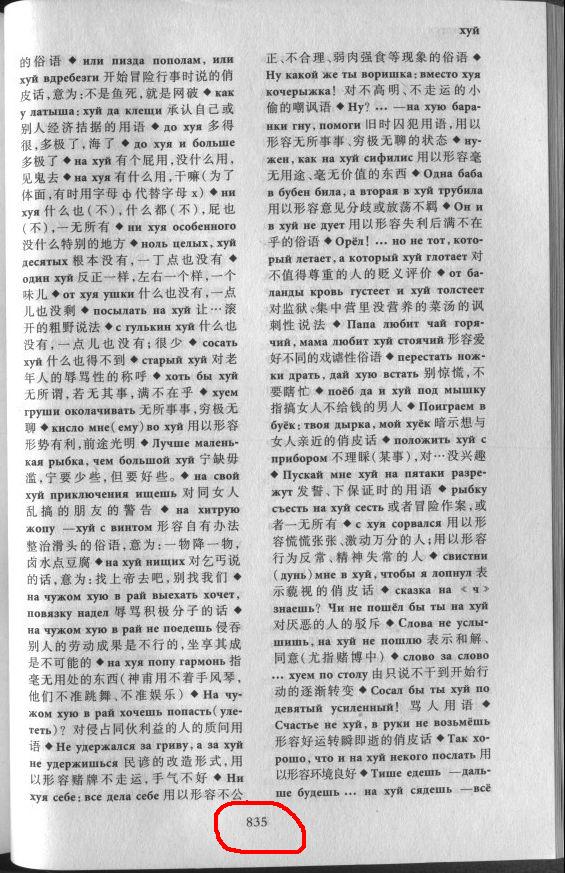 хуй
的俗语 ◆ или пизда пополам, или
хуй вдребезги 开始冒险行事时说的俏
皮话,意为:不是鱼死,就是网破 ◆ как
у латыша: хуй да клещи 承认自己或
别人经济拮据的用语 ◆ до хуя 多得
很,多极了,海了 ◆ до хуя и больше
多极了 ◆ на хуй 有个屁用,没什么用,
见鬼去 ◆ на хуя 有什么用,干嘛(为了
体面,有时用字母 ф 代替字母 х) ◆ ни
хуя 什么也(不),什么都(不),屁也
(不),一无所有 ◆ ни хуя особенного
没什么特别的地方 ◆ ноль целых, хуй
десятых 根本没有,一丁点也没有 ◆
один хуй 反正一样,左右一个样,一个
味儿 ◆ от хуя ушки 什么也没有,一点
儿也没剩 ◆ посылать на хуй 让…滚
开的粗野说法 ◆ с гулькин хуй 什么也
没有,一点儿也没有;很少 ◆ сосать
хуй 什么也得不到 ◆ старый хуй 对老
年人的辱骂性的称呼 ◆ хоть бы хуй
无所谓,若无其事,满不在乎 ◆ хуем
груши околачивать 无所事事,穷极无
聊 ◆ кисло мне(ему) во хуй 用以形容
形势有利,前途光明 ◆ Лучше малень-
кая рыбка, чем большой хуй 宁缺毋
滥,宁要少些,但要好些。 ◆ на свой
хуй приключения ищешь 对同女人
乱搞的朋友的警告 ◆ на хитрую
жопу —хуй с винтом 形容自有办法
整治滑头的俗语,意为:一物降一物,
卤水点豆腐 ◆ на хуй нищих 对乞丐说
的话,意为:找上帝去吧,别找我们 ◆
на чужом хую в рай выехать хочет,
повязку надел 辱骂积极分子的话 ◆
на чужом хую в рай не поедешь 侵吞
别人的劳动成果是不行的,坐享其成
是不可能的 ◆ на хуя попу гармонь 指
毫无用处的东西(神甫用不着手风琴,
他们不准跳舞、不准娱乐) ◆ На чу-
жом хую в рай хочешь попасть(уле-
теть)? 对侵占同伙利益的人的质问用
语 ◆ Не удержался за гриву, а за хуй
не удержишься 民谚的改造形式,用
以形容赌牌不走运,手气不好 ◆ Ни
хуя себе: все дела себе 用以形容不公
正、不合理、弱肉强食等现象的俗语 ◆
Ну какой же ты воришка: вместо хуя
кочерыжка! 对不高明、不走运的小
偷的嘲讽语 ◆ Ну? ... —на хую бара-
нки гну, помоги 旧时囚犯用语,用以
形容无所事事、穷极无聊的状态 ◆ ну-
жен, как на хуй сифилис 用以形容毫
无用途、毫无价值的东西 ◆ Одна баба
в бубен била, а вторая в хуй трубила
用以形容意见分歧或放荡不羁 ◆ Он и
в хуй не дует 用以形容失利后满不在
乎的俗语 ◆ Орёл! ... но не тот, кото-
рый летает, а который хуй глотает 对
不值得尊重的人的贬义评价 ◆ от ба-
ланды кровь густеет и хуй толстеет
对监狱、集中营里没营养的菜汤的讽
刺性说法 ◆ Папа любит чай горя-
чий, мама любит хуй стоячий 形容爱
好不同的戏谑性俗语 ◆ перестать нож-
ки драть, дай хую встать 别惊慌,不
要瞎忙 ◆ поёб да и хуй под мышку
指搞女人不给钱的男人 ◆ Поиграем в
буёк: твоя дырка, мой хуёк 暗示想与
女人亲近的俏皮话 ◆ положить хуй с
прибором 不理睬(某事),对…没兴趣
◆ Пускай мне хуй на пятаки разре-
жут 发誓、下保证时的用语 ◆ рыбку
съесть на хуй сесть 或者冒险作案,或
者一无所有 ◆ с хуя сорвался 用以形
容慌慌张张、激动万分的人;用以形容
行为反常、精神失常的人 ◆ свистни
(дунь) мне в хуй, чтобы я лопнул 表
示藐视的俏皮话 ◆ сказка на <ч>
знаешь? Чи не пошёл бы ты на хуй
对厌恶的人的驳斥 ◆ Слова не услы-
шишь, на хуй не пошлю 表示和解、
同意(尤指赌博中) ◆ слово за слово
... хуем по столу 由只说不干到开始行
动的逐渐转变 ◆ Сосал бы ты хуй по
девятый усиленный! 骂人用语 ◆
Счастье не хуй, в руки не возьмёшь
形容好运转瞬即逝的俏皮话 ◆ Так хо-
рошо, что и на хуй некого послать 用
以形容环境良好 ◆ Тише едешь —даль-
ше будешь ... на хуй сядешь —всё
835